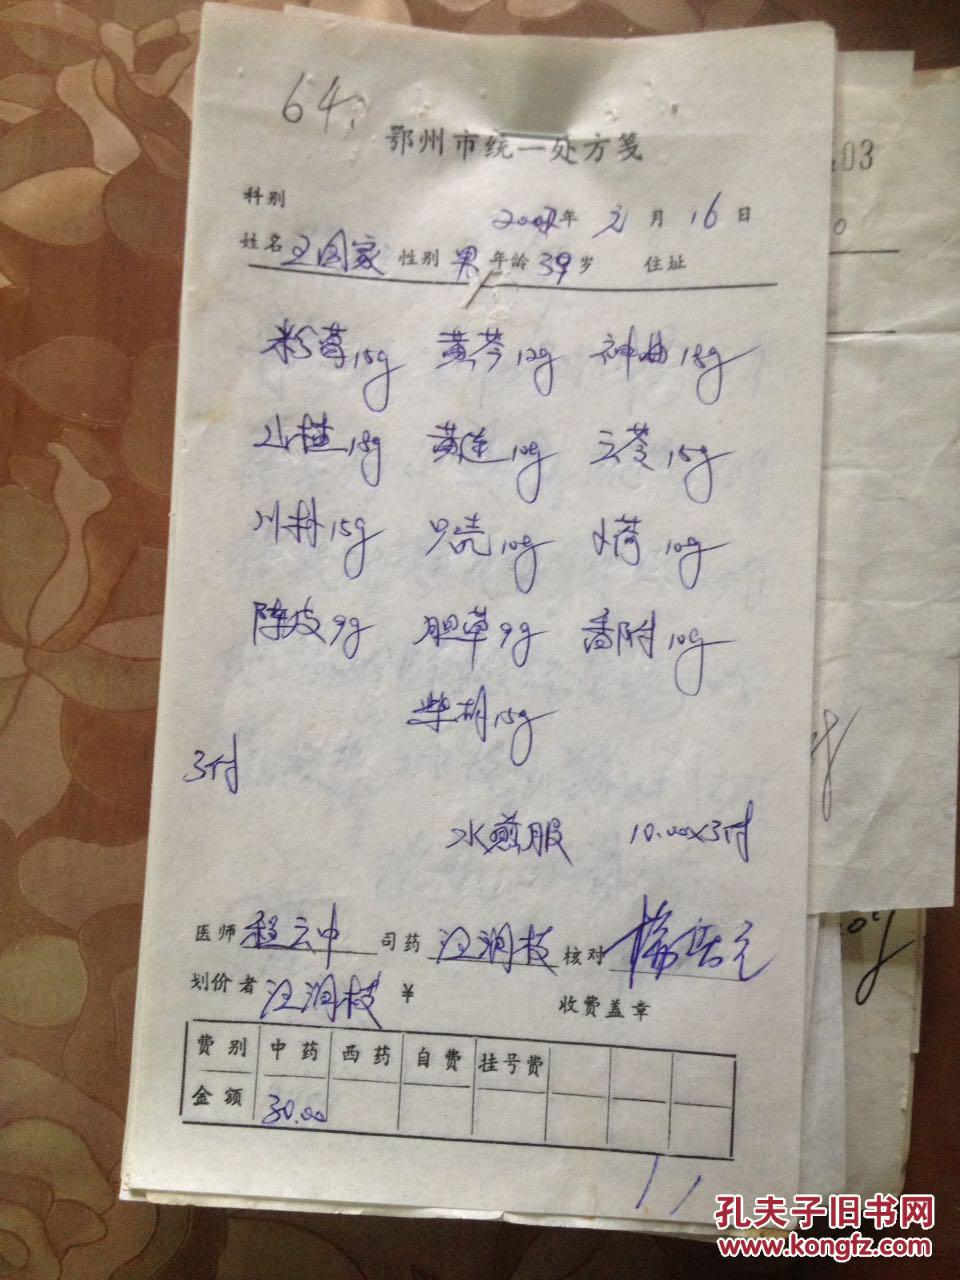 64
鄂州市统一处方笺
403
科别
2007年 元月 16日
姓名 王国家 性别 男 年龄 39岁 住址
粉萆15g 黄芩12g 神曲15g
山楂15g 黄连10g 云苓15g
川朴15g 只壳10g 卜荷10g
陈皮9g 胆草9g 香附10g
柴胡15g
3付
水煎服 10.00x3付
医师 程云中 司药 汪润枝 核对
划价者 汪润枝 ¥ 收费盖章
费别 中药 西药 自费 挂号费
金额 30.00
孔夫子旧书网
www.kongfz.com